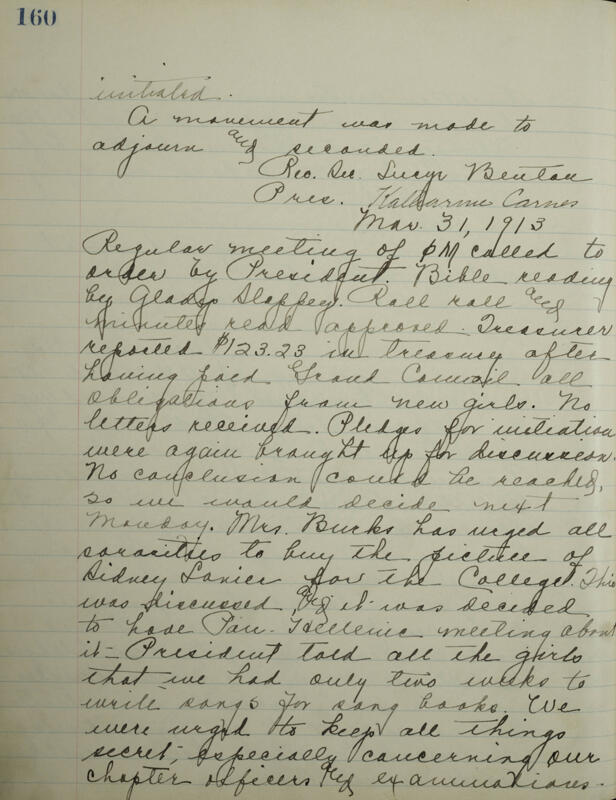 160
initiated.
A movement was made to
adjourn and seconded.
Rec. Sec. Lucyr Benton
Pres. Katharine Carnes
Mar. 31, 1913
Regular meeting of ΦM called to
order by President. Bible reading
by Gladys Slappey. Roll roll and
minutes read approved. Treasurer
reported $123.23 in treasury after
having paid Grand Council all
obligations from new girls. No
letters received. Pledges for initiation
were again brought up for discussion.
No conclusion could be reached,
so we would decide next
Monday. Mrs. Burks has urged all
sororities to buy the picture of
Sidney Lanier for the College. This
was discussed and it was decided
to have Pan-Hellenic meeting about
it – President told all the girls
that we had only two weeks to
write songs for song books. We
were urged to keep all things
secret, especially concerning our
chapter officers and examinations.